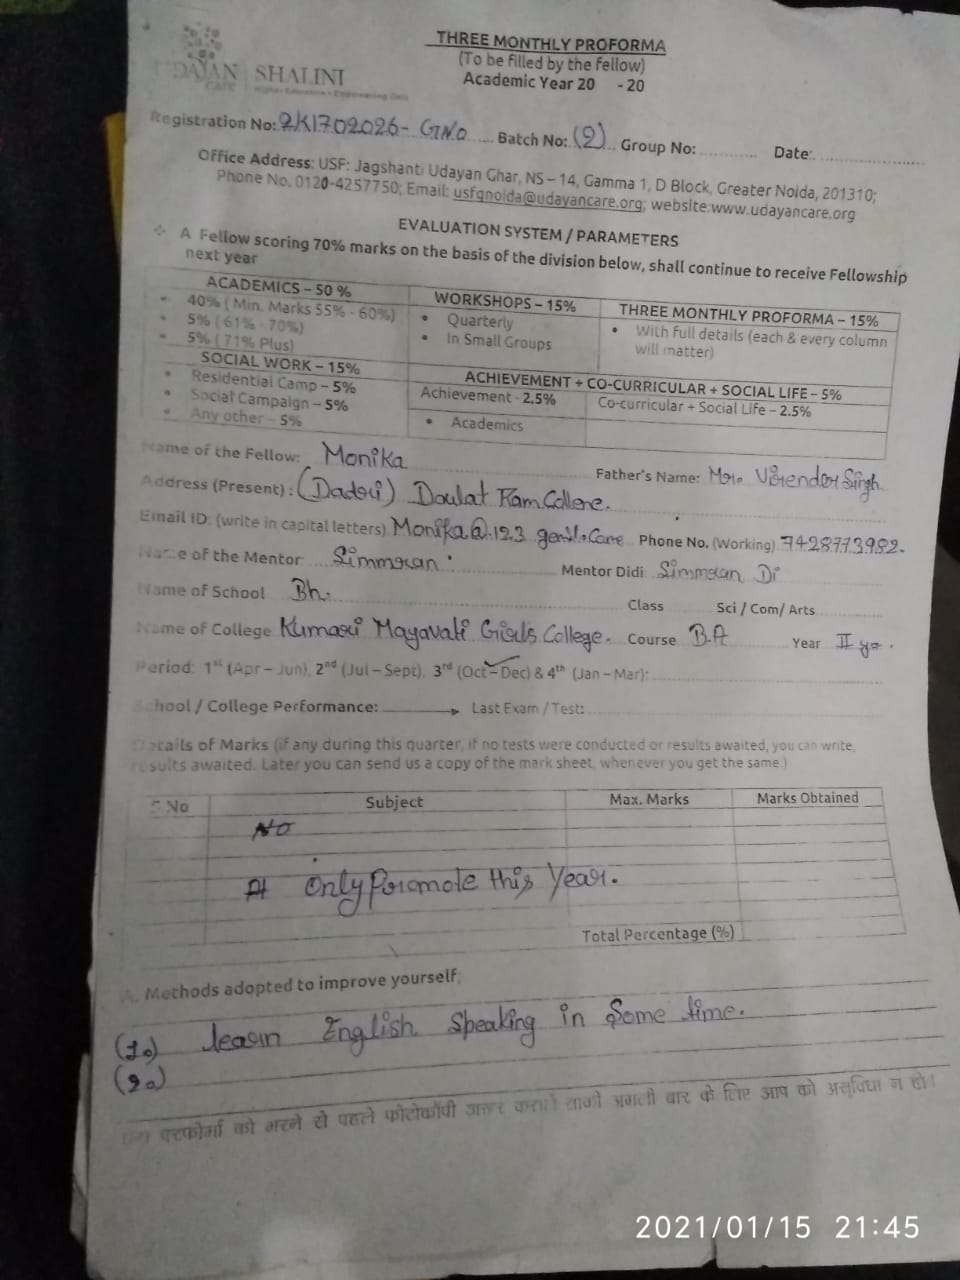 THREE MONTHLY PROFORMA
(To be filled by the fellow)
Academic Year 20 - 20
UDAYAN CARE SHALINI
Registration No: 2K1702026- GNo Batch No: (2) Group No: ............ Date: ......................
Office Address: USF: Jagshanti Udayan Ghar, NS – 14, Gamma 1, D Block, Greater Noida, 201310;
Phone No. 0120-4257750; Email: usfgnoida@udayancare.org; website:www.udayancare.org
EVALUATION SYSTEM / PARAMETERS
A Fellow scoring 70% marks on the basis of the division below, shall continue to receive Fellowship
next year
ACADEMICS – 50 %
• 40% ( Min. Marks 55% - 60%)
• 5% ( 61% - 70%)
• 5% ( 71% Plus)
WORKSHOPS – 15%
• Quarterly
• In Small Groups
THREE MONTHLY PROFORMA – 15%
• With full details (each & every column
will matter)
SOCIAL WORK – 15%
• Residential Camp – 5%
• Social Campaign – 5%
• Any other – 5%
ACHIEVEMENT + CO-CURRICULAR + SOCIAL LIFE – 5%
Achievement - 2.5%
• Academics
Co-curricular + Social Life – 2.5%
Name of the Fellow: Monika Father's Name: Mr. Virender Singh
Address (Present) : (Dadri) Doulat Ram Collene.
Email ID: (write in capital letters) Monika@.123 Phone No. (Working) 7428773982.
Name of the Mentor Simmran Mentor Didi Simmran Di
Name of School Bh. Class Sci / Com/ Arts
Name of College Kumari Mayavati Girls College. Course B.A Year II yr.
Period: 1st (Apr – Jun), 2nd (Jul – Sept), 3rd (Oct – Dec) & 4th (Jan – Mar):
School / College Performance: Last Exam / Test:
Details of Marks (if any during this quarter, if no tests were conducted or results awaited, you can write,
results awaited. Later you can send us a copy of the mark sheet, whenever you get the same.)
S.No Subject Max. Marks Marks Obtained
No
Only Promote this Year.
Total Percentage (%)
A. Methods adopted to improve yourself;
(1.) learn English Speaking in Some time.
(2.)
परफोर्मा को भरने से पहले फोटोकॉपी जरूर कराले ताकी अगली बार के लिए आप को असुविधा न हो।
2021/01/15 21:45